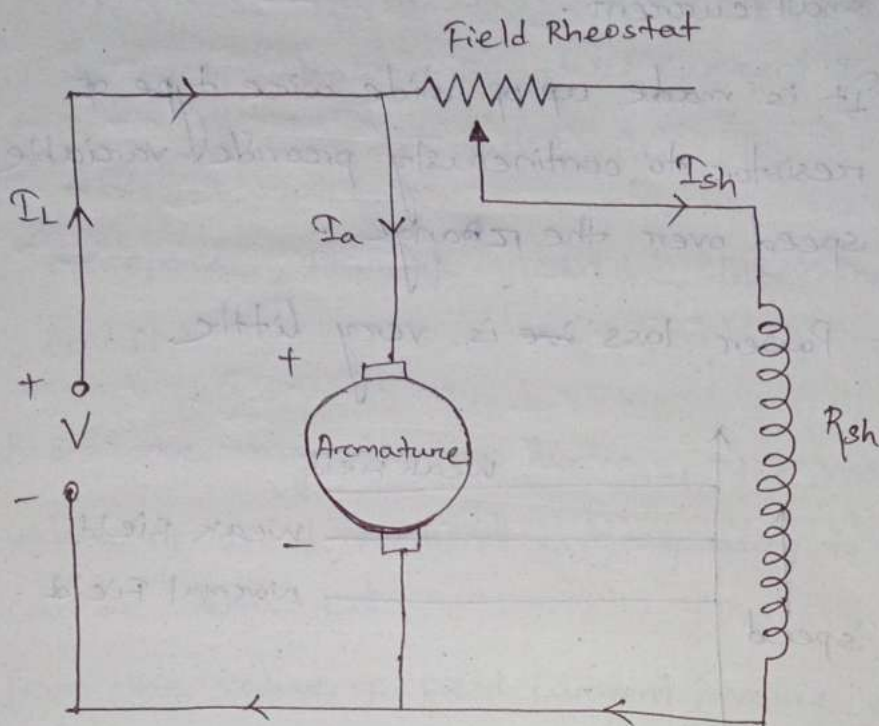 Field Rheostat
I_L
I_a
I_sh
+
V
-
+
Aromature
-
R_sh